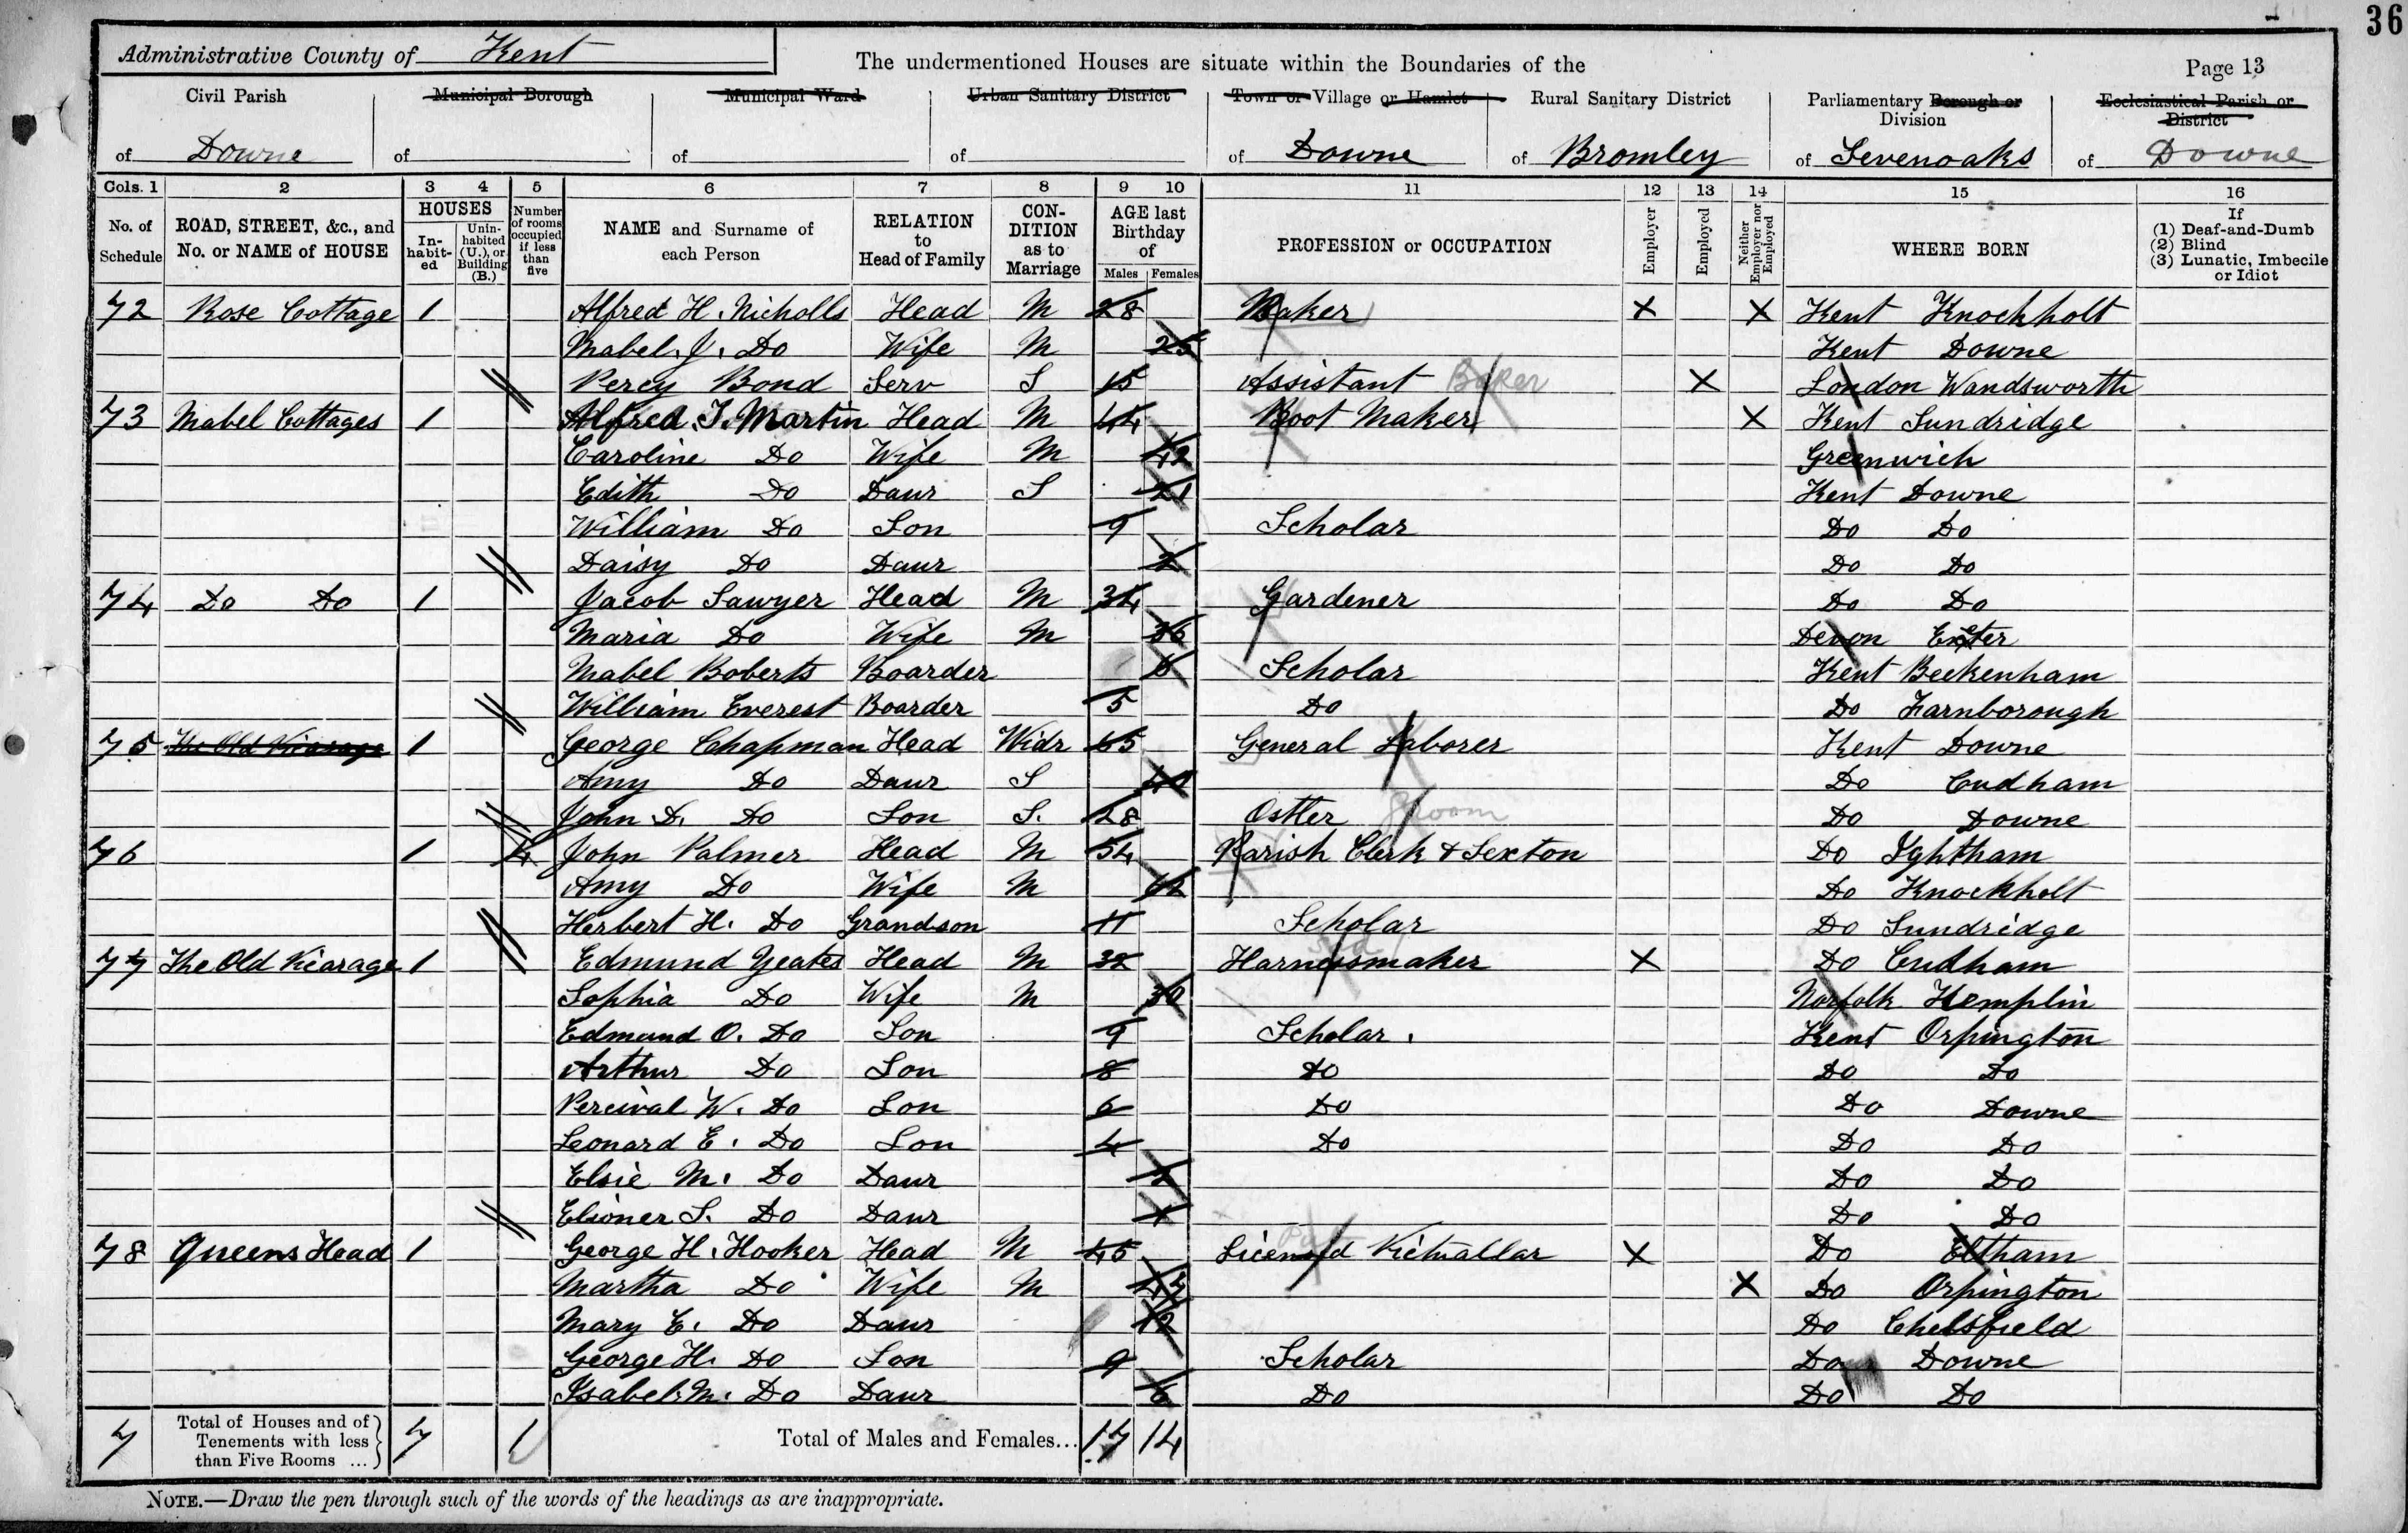 36
Administrative County of Kent
The undermentioned Houses are situate within the Boundaries of the
Page 13
Civil Parish of Downe
Municipal Borough of
Municipal Ward of
Urban Sanitary District of
Town or Village or Hamlet of Downe
Rural Sanitary District of Bromley
Parliamentary Borough or Division of Sevenoaks
Ecclesiastical Parish or District of Downe
Cols. 1 2 3 4 5 6 7 8 9 10 11 12 13 14 15 16
No. of Schedule
ROAD, STREET, &c., and No. or NAME of HOUSE
HOUSES
In-habit-ed
Unin-habited (U.), or Building (B.)
Number of rooms occupied if less than five
NAME and Surname of each Person
RELATION to Head of Family
CON-DITION as to Marriage
AGE last Birthday of
Males Females
PROFESSION or OCCUPATION
Employer
Employed
Neither Employer nor Employed
WHERE BORN
If (1) Deaf-and-Dumb (2) Blind (3) Lunatic, Imbecile or Idiot
72 Rose Cottage 1 Alfred H. Nicholls Head M 28 Baker X X Kent Knockholt
Mabel. J. Do Wife M 25 Kent Downe
Percy Bond Serv S 15 Assistant Baker X London Wandsworth
73 Mabel Cottages 1 Alfred J. Martin Head M 44 Boot Maker X Kent Sundridge
Caroline Do Wife M 42 Greenwich
Edith Do Daur S 21 Kent Downe
William Do Son 9 Scholar Do Do
Daisy Do Daur 2 Do Do
74 Do Do 1 Jacob Sawyer Head M 34 Gardener Do Do
Maria Do Wife M 36 Devon Exeter
Mabel Boberts Boarder Scholar Kent Beckenham
William Everest Boarder 5 Do Do Farnborough
75 The Old Vicarage 1 George Chapman Head Widr 65 General Laborer Kent Downe
Amy Do Daur S 40 Do Cudham
John D. Do Son S. 28 Ostler Groom Do Downe
76 1 4 John Palmer Head M 54 Parish Clerk & Sexton Do Ightham
Amy Do Wife M 62 Do Knockholt
Herbert H. Do Grandson 11 Scholar Do Sundridge
77 The Old Vicarage 1 Edmund Yeates Head M 32 Harnessmaker X Do Cudham
Sophia Do Wife M 30 Norfolk Hemplin
Edmund O. Do Son 9 Scholar. Kent Orpington
Arthur Do Son 8 Do Do Do
Percival W. Do Son 6 Do Do Downe
Leonard E. Do Son 4 Do Do Do
Elsie M. Do Daur 2 Do Do
Elioner S. Do Daur 1 Do Do
78 Queens Head 1 George H. Hooker Head M 45 Licensed Victuallar X Do Eltham
Martha Do Wife M X Do Orpington
Mary E. Do Daur 12 Do Chelsfield
George H. Do Son 9 Scholar Do Downe
Isabel. M. Do Daur 6 Do Do Do
7 Total of Houses and of Tenements with less than Five Rooms ... 7 1 Total of Males and Females... 17 14
NOTE.—Draw the pen through such of the words of the headings as are inappropriate.